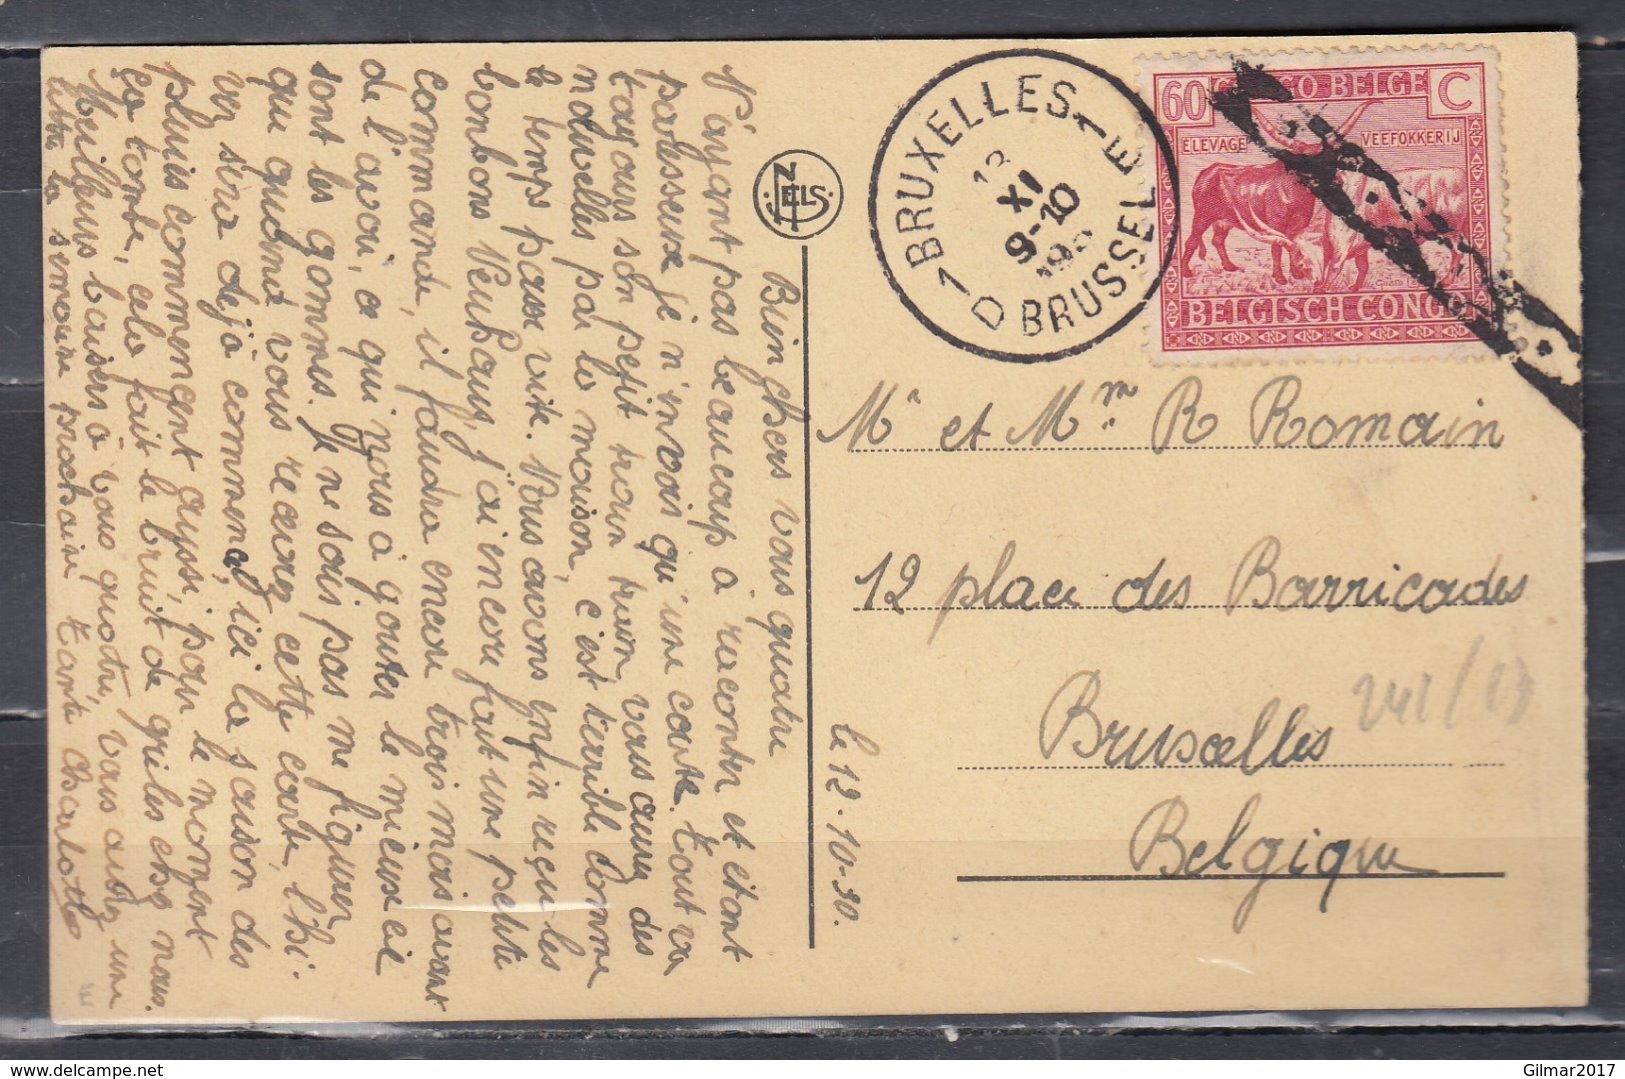 Bien chers vous quatre
N'ayant pas beaucoup à raconter et étant
paresseuse je n'envois qu'une carte. Tout va
toujours son petit train train vous aurez des
nouvelles par la maison, c'est terrible comme
le temps passe vite. Nous avons enfin reçu les
bonbons Neuhaus, j'ai encore fait une petite
commande, il faudra encore trois mois avant
de l'avoir, ce qui nous à gouter le mieux ici
sont les gommes. Je ne sais pas me figurer
que quand vous recevrez cette carte, l'hi-
ver sera dejà commencé, ici la saison des
pluies commencent aussi, pour le moment
ça tombe, cela fait le bruit de chez nous.
Meilleurs baisers à vous quatre, vous aurez une
lettre la semaine prochaine Tante Charlotte
NELS
BRUXELLES 1 E 1 D BRUSSEL
XI
9-10
60 CONGO BELGE C
ELEVAGE VEEFOKKERIJ
BELGISCH CONGO
Mr et Mme R Romain
12 place des Barricades
Bruxelles
Belgique
le 12-10-30.
Gilmar2017